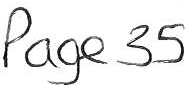 Page 35